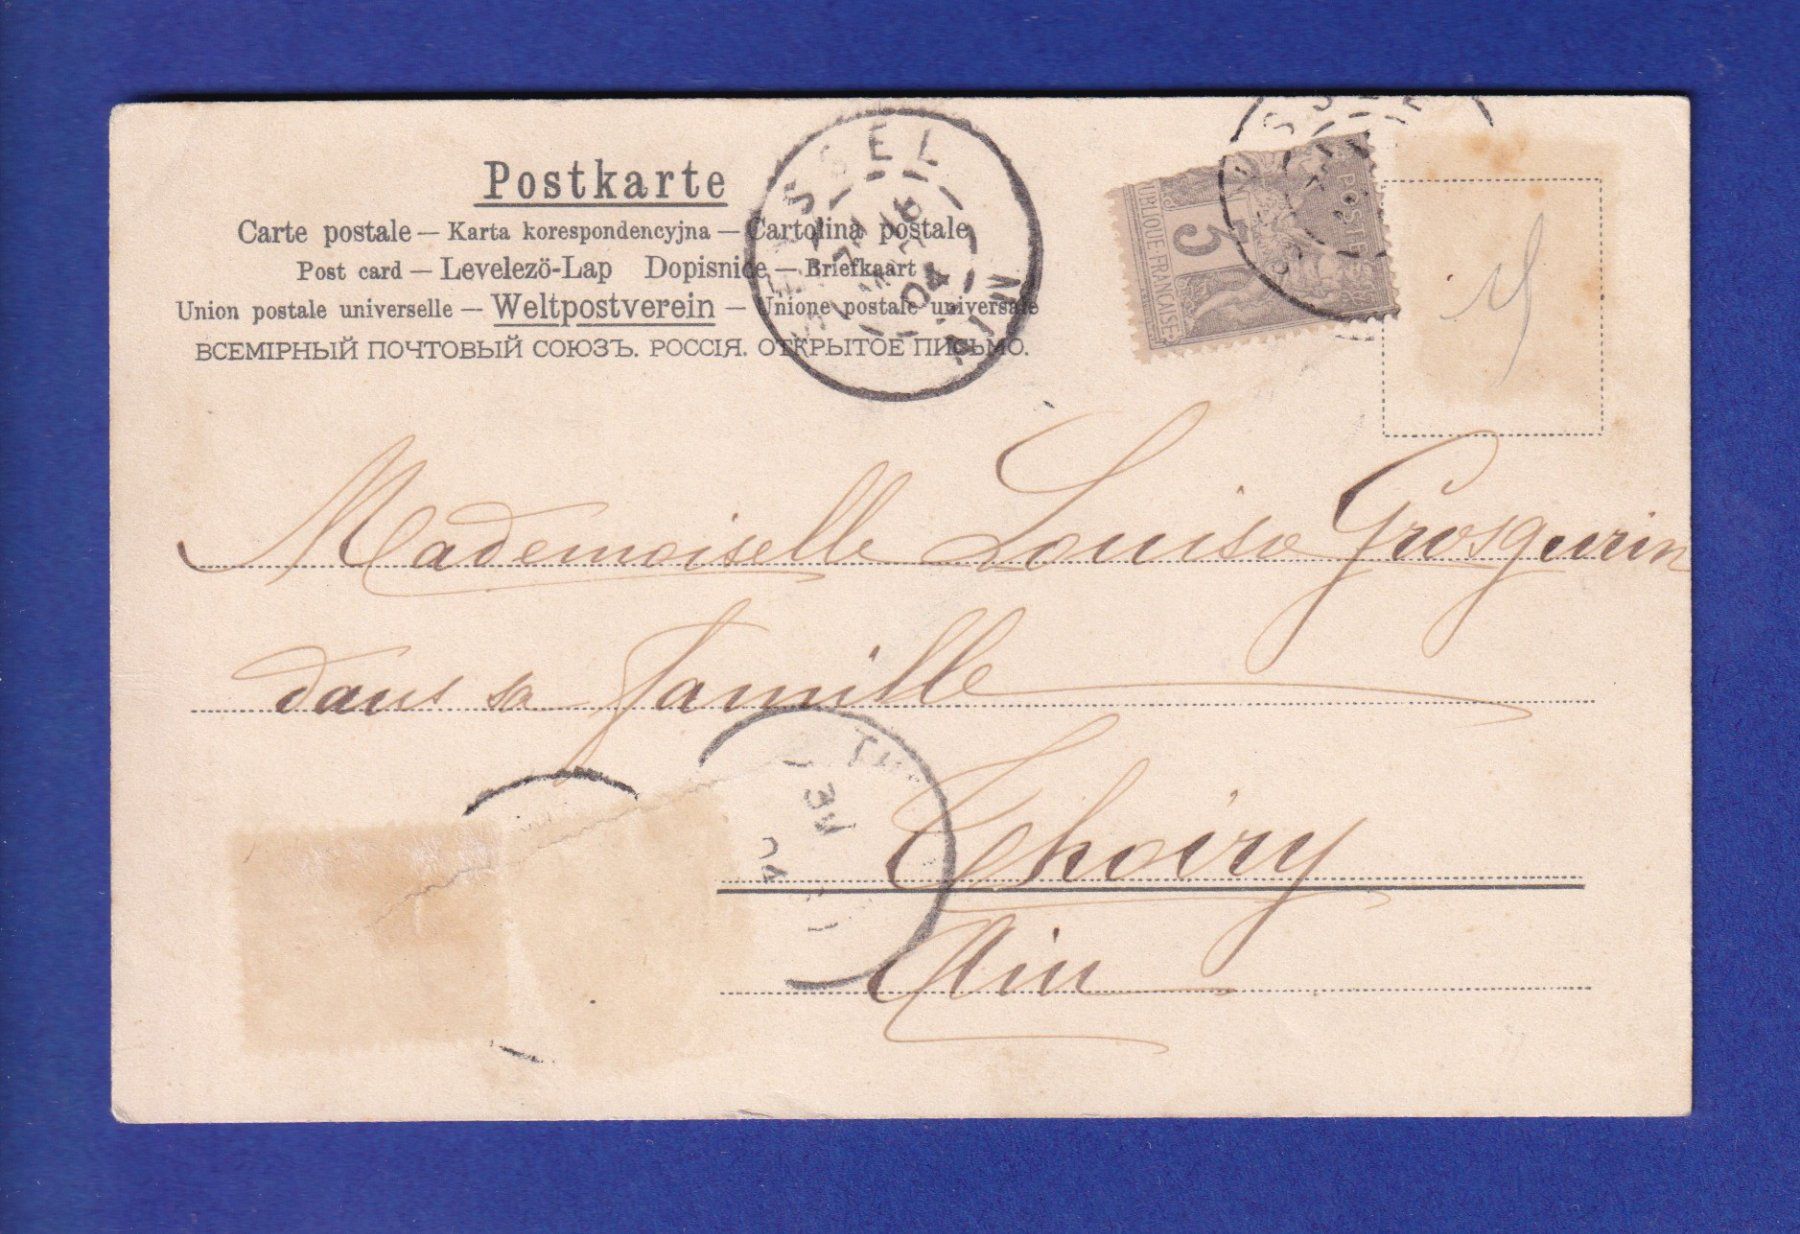 Postkarte
Carte postale — Karta korespondencyjna — Cartolina postale
Post card — Levelezö-Lap Dopisnice — Briefkaart
Union postale universelle — Weltpostverein — Unione postale universale
ВСЕМІРНЫЙ ПОЧТОВЫЙ СОЮЗЪ. РОССІЯ. ОТКРЫТОЕ ПИСЬМО.
SSEL
AIN
04
POSTE
5
UBLIQUE·FRANÇAISE
Mademoiselle Louise Grosgurin
dans sa famille
Thoiry
Ain
TH
3
04